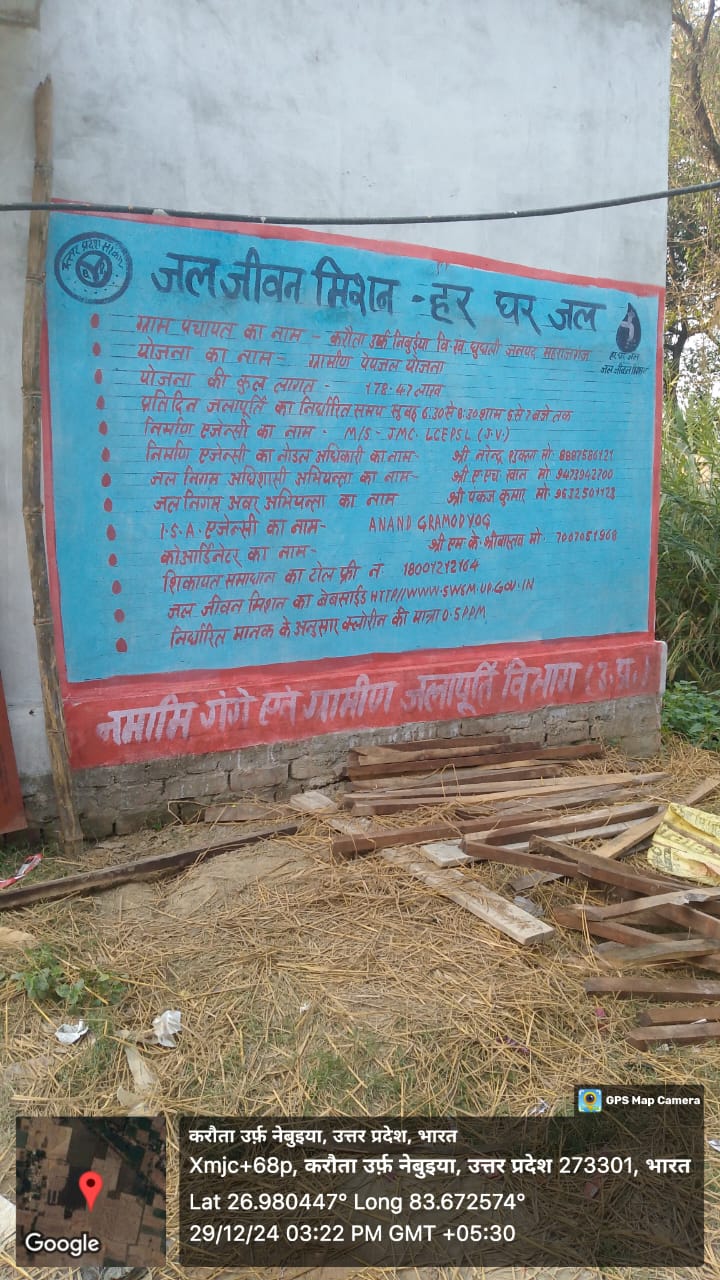 उत्तर प्रदेश
जल जीवन मिशन - हर घर जल
हर घर जल
जल जीवन मिशन
ग्राम पंचायत का नाम - करौता उर्फ निबुईया वि.ख. जनपद महराजगंज
योजना का नाम- ग्रामीण पेयजल योजना
योजना की कुल लागत - 178.47 लाख
प्रतिदिन जलापूर्ति का निर्धारित समय सुबह 6:30 से 8:30 शाम 5 से 7 बजे तक
निर्माण एजेन्सी का नाम - M/S - JMC. LCEPSL (J.V.)
निर्माण एजेन्सी का नोडल अधिकारी का नाम- श्री नरेन्द्र शुक्ला मो. 8887586121
जल निगम अधिशासी अभियन्ता का नाम- श्री ए.एच. खान मो. 9473942700
जल निगम अवर अभियन्ता का नाम श्री पंकज कुमार मो.
I.S.A. एजेन्सी का नाम- ANAND GRAMODYOG
कोआर्डिनेटर का नाम- श्री एम के श्रीवास्तव मो. 7007051908
शिकायत समाधान का टोल फ्री नं. 18001212164
जल जीवन मिशन का बेबसाईड HTTP//WWW.SWSM.UP.GOV.IN
निर्धारित मानक के अनुसार क्लोरीन की मात्रा 0.5 PPM
नमामि गंगे एवं ग्रामीण जलापूर्ति विभाग (उ.प्र.)
GPS Map Camera
करौता उर्फ़ नेबुइया, उत्तर प्रदेश, भारत
Xmjc+68p, करौता उर्फ़ नेबुइया, उत्तर प्रदेश 273301, भारत
Lat 26.980447° Long 83.672574°
29/12/24 03:22 PM GMT +05:30
Google